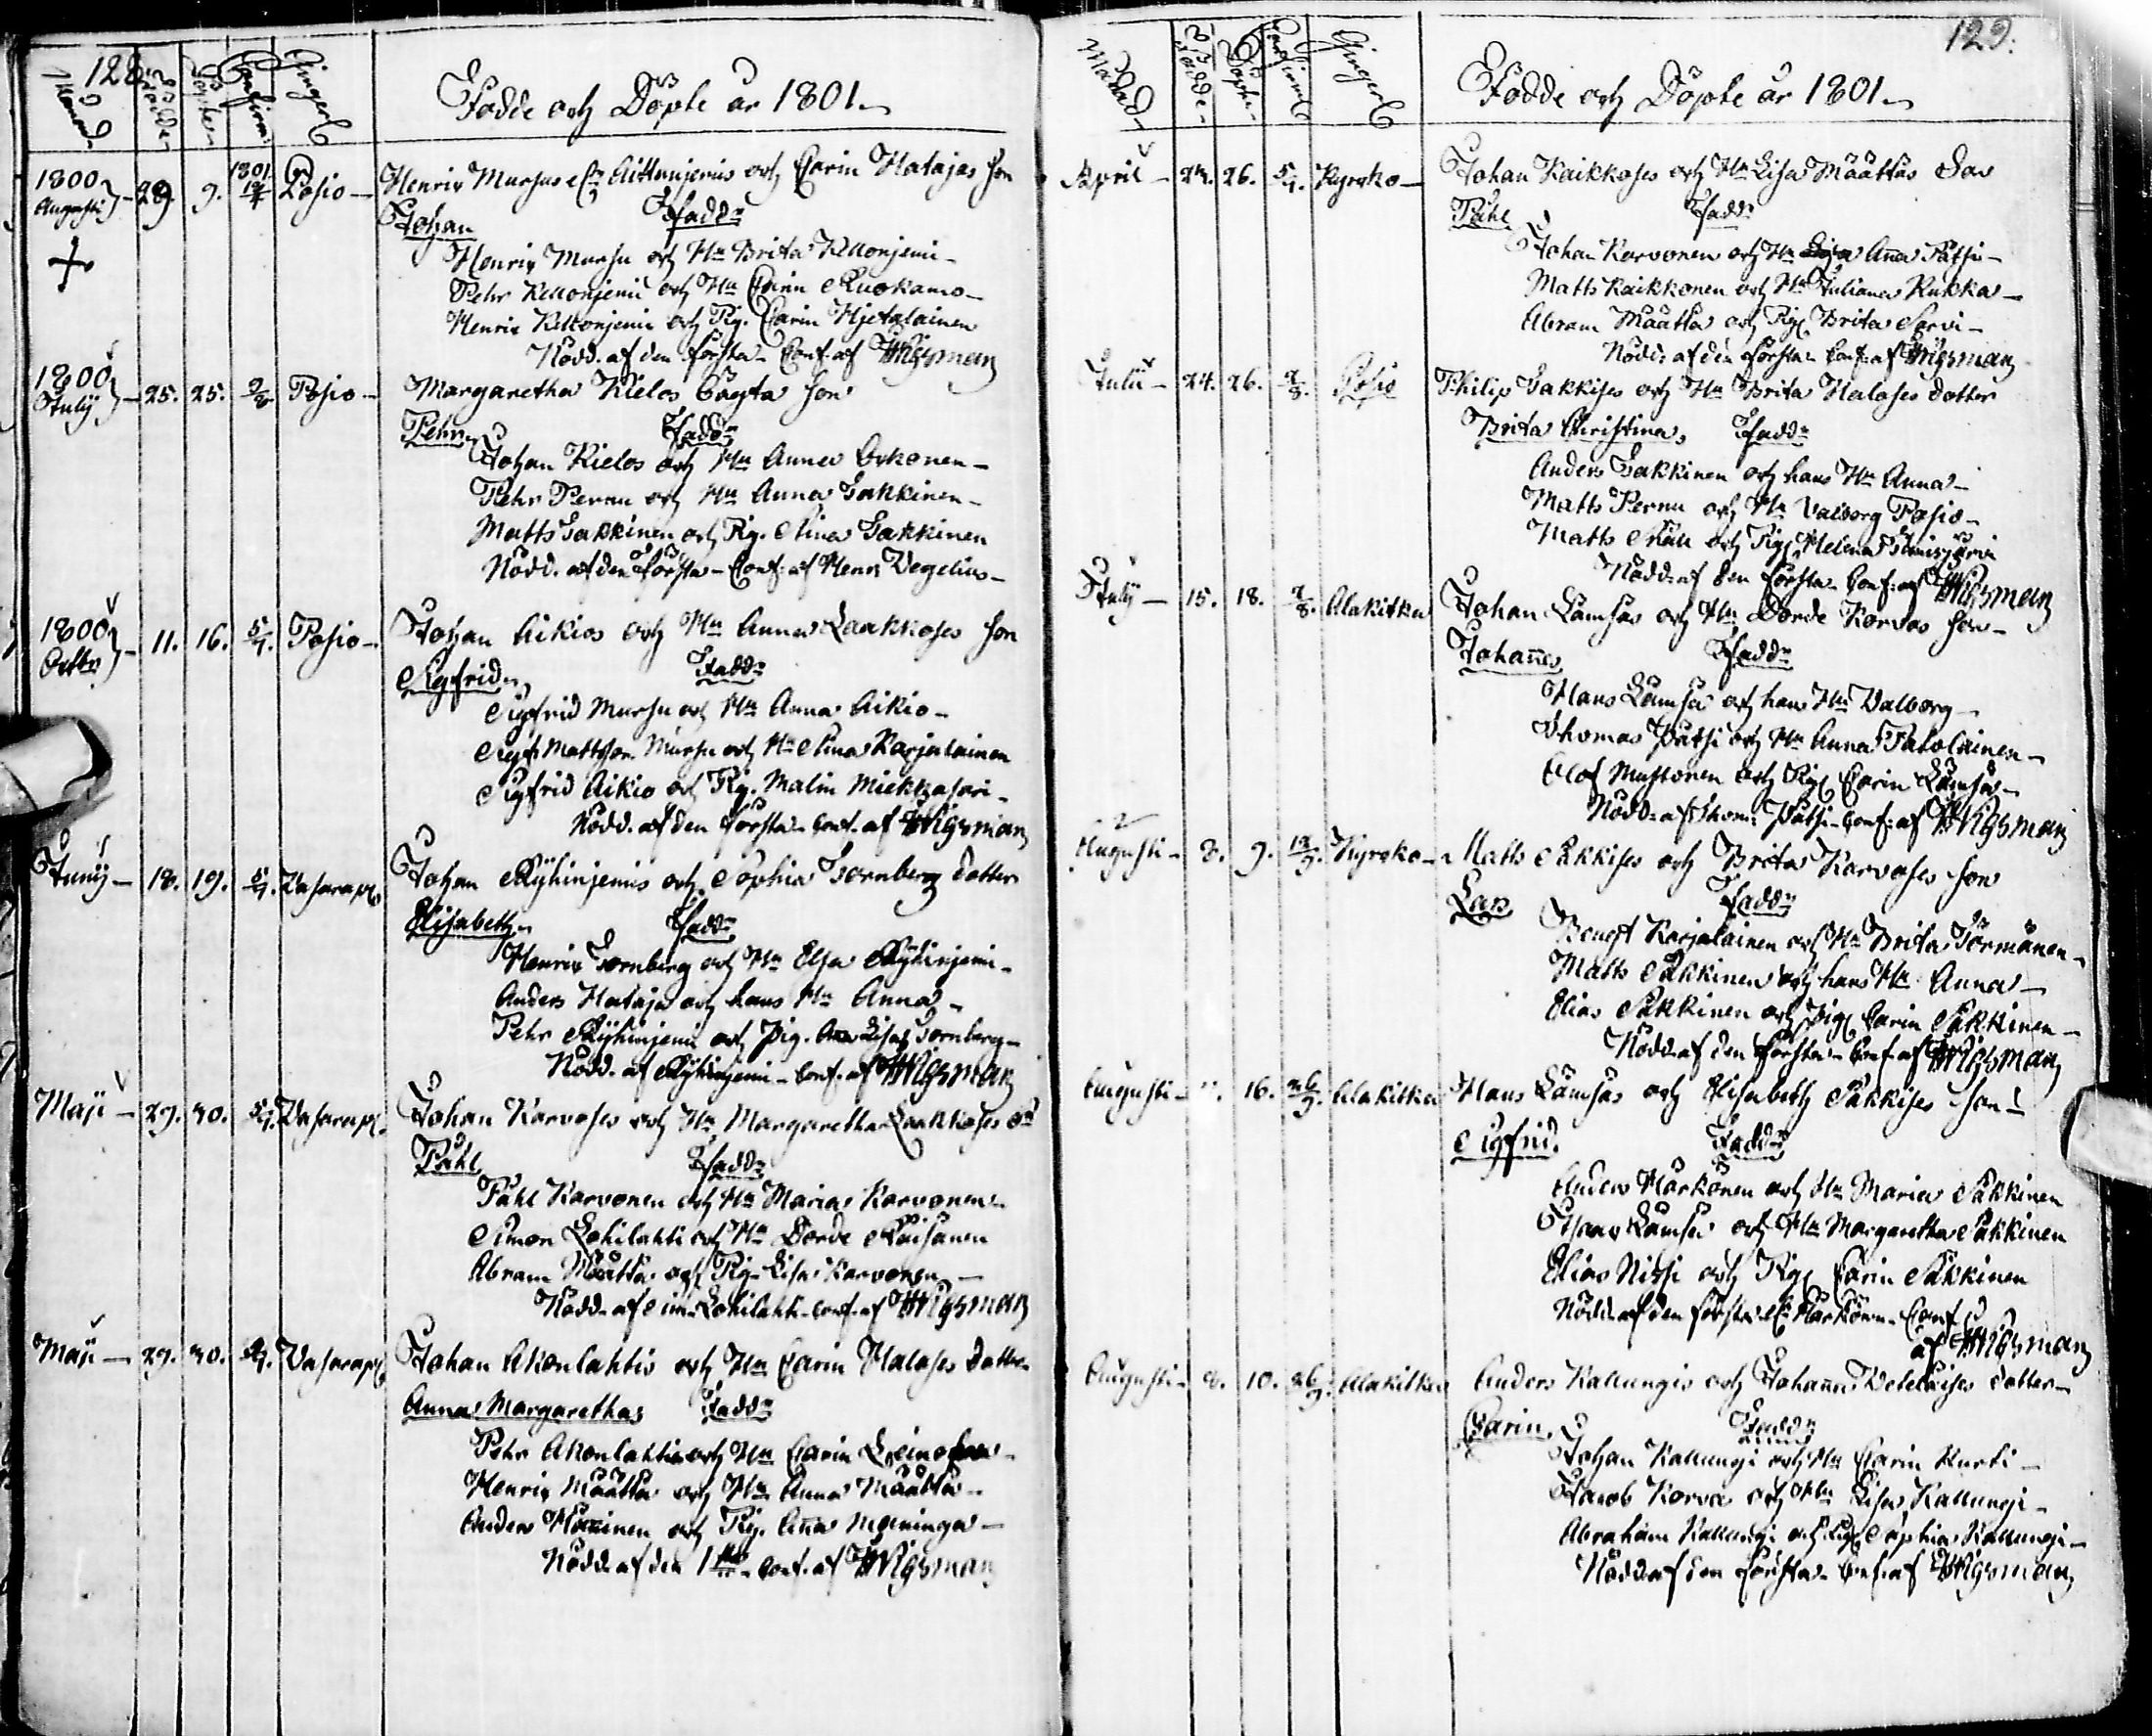 128.
Månad Födde Döpte Confirm. Gingerd
Födde och Döpte år 1801.
1800 Augusti 29. 9. 1801 Posio Henric Mursus och Carin Hatajas son
Johan Fadd:
Henric Mursu och Hu Brita Kellonjemi
Pehr Kellonjemi och Hu Carin Ruokamo
Henric Kellonjemi och Pig. Carin Hjetalainen
Nödd. af den första Conf. af HWigsman
1800 July 25. 25. 2/8 Posio Margaretha Kielos oägta son
Pehr Fadd:
Johan Kielos och Hu Anna
Pehr Pernu och Hu Anna Lakkinen
Matts Lakkinen och Pig. Stina Lakkinen
Nödd. af den första Conf. af Henr Wegelius
1800 Octbr 11. 16. 5/7. Posio Johan Aikios och Hu Anna Laakkoses son
Sigfrid Fadd:
Sigfrid Mursu och Hu Anna Aikio
Sigfr. Mattsson Mursu och Hu Stina Karjalainen
Sigfrid Aikio och Pig. Malin
Nödd. af den första Conf. af HWigsman
Juny 18. 19. 5/7. Vasarap. Johan Ryhinjemis och Sophia Tornberg dotter
Elisabeth Fadd:
Henric Tornberg och Hu Elsa Ryhinjemi
Anders Hataja och hans Hu Anna
Pehr Ryhinjemi och Pig. Anna Lisa Tornberg
Nödd. af Ryhinjemi Conf. af HWigsman
Maji 29. 30. 5/7. Vasarap. Johan Karvoses och Hu Margaretha Laakkoses
Påhl Fadd:
Påhl Karvonen och Hu Maria Karvonen
Simon Lohilahti och Hu Dorde Räisänen
Abram Määttä och Pig. Lisa Karvonen
Nödd. af Sim. Lohilahti Conf. af HWigsman
Maji 29. 30. 5/7. Vasarap. Johan Akonlahtis och Hu Carin Haloses dotter
Anna Margaretha Fadd:
Pehr Akonlahti och Hu Carin
Henric Määttä och Hu Anna Määttä
Anders och Pig. Anna Meininga
Nödd. af den 1sta Conf. af HWigsman
129.
Månad Födde Döpte Confirm. Gingerd
Födde och Döpte år 1801.
April 24. 26. 5/7. Kyrcko Johan Kaikkoses och Hu Lisa Määttäs Son
Påhl Fadd:
Johan Karvonen och Hu Anna Pätsi
Matts Kaikkonen och Hu Juliana Kukka
Abram Määttä och Pig. Brita Sarvi
Nödd. af den första Conf. af HWigsman
Julii 24. 26. 2/8. Posio Philip Lakkises och Hu Brita Haloses dotter
Brita Christina Fadd:
Anders Lakkinen och hans Hu Anna
Matts Pernu och Hu Valborg Posio
Matts och Pig. Helena
Nödd. af den första Conf. af HWigsman
July 15. 18. 2/8. Alakitka Johan Lämsäs och Hu Dorde Korvas son
Johannes Fadd:
Hans Lämsä och hans Hu Valborg
Thomas Pätsi och Hu Anna
Olof Mustonen och Pig. Carin Lämsä
Nödd. af Thom. Pätsi Conf. af HWigsman
Augusti 8. 9. 13/9. Kyrcko Matts Säkkises och Brita Karvoses son
Lars Fadd:
Bengt Karjalainen och Hu Brita Törmänen
Matts Säkkinen och hans Hu Anna
Elias Säkkinen och Pig. Carin Säkkinen
Nödd. af den första Conf. af HWigsman
Augusti 16. 26/9. Alakitka Hans Lämsäs och Elisabeth Säkkises son
Sigfrid Fadd:
Anders Härkönen och Hu Maria Säkkinen
Lämsä och Hu Margaretha Säkkinen
Elias Nissi och Pig. Carin Säkkinen
Nödd. af den första Härkönen Conf.
af HWigsman
Augusti 8. 10. 26/9. Alakitka Anders Kallungis och Johanna dotter
Carin Fadd:
Johan Kallungi och Hu Carin Kurti
Jacob Korva och Hu Lisa Kallungi
Abraham Kallungi och Pig. Sophia Kallungi
Nödd. af den första Conf. af HWigsman